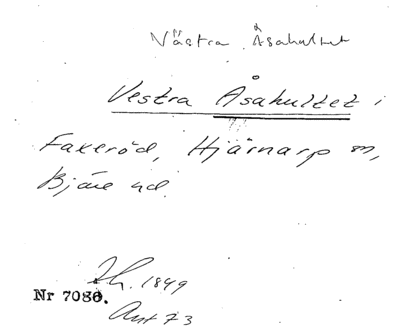 Västra Åsahultet
Vestra Åsahultet i
Faxeröd, Hjärnarp sn,
Bjäre hd.
Lh. 1849
Nr 7080.
Ant 73